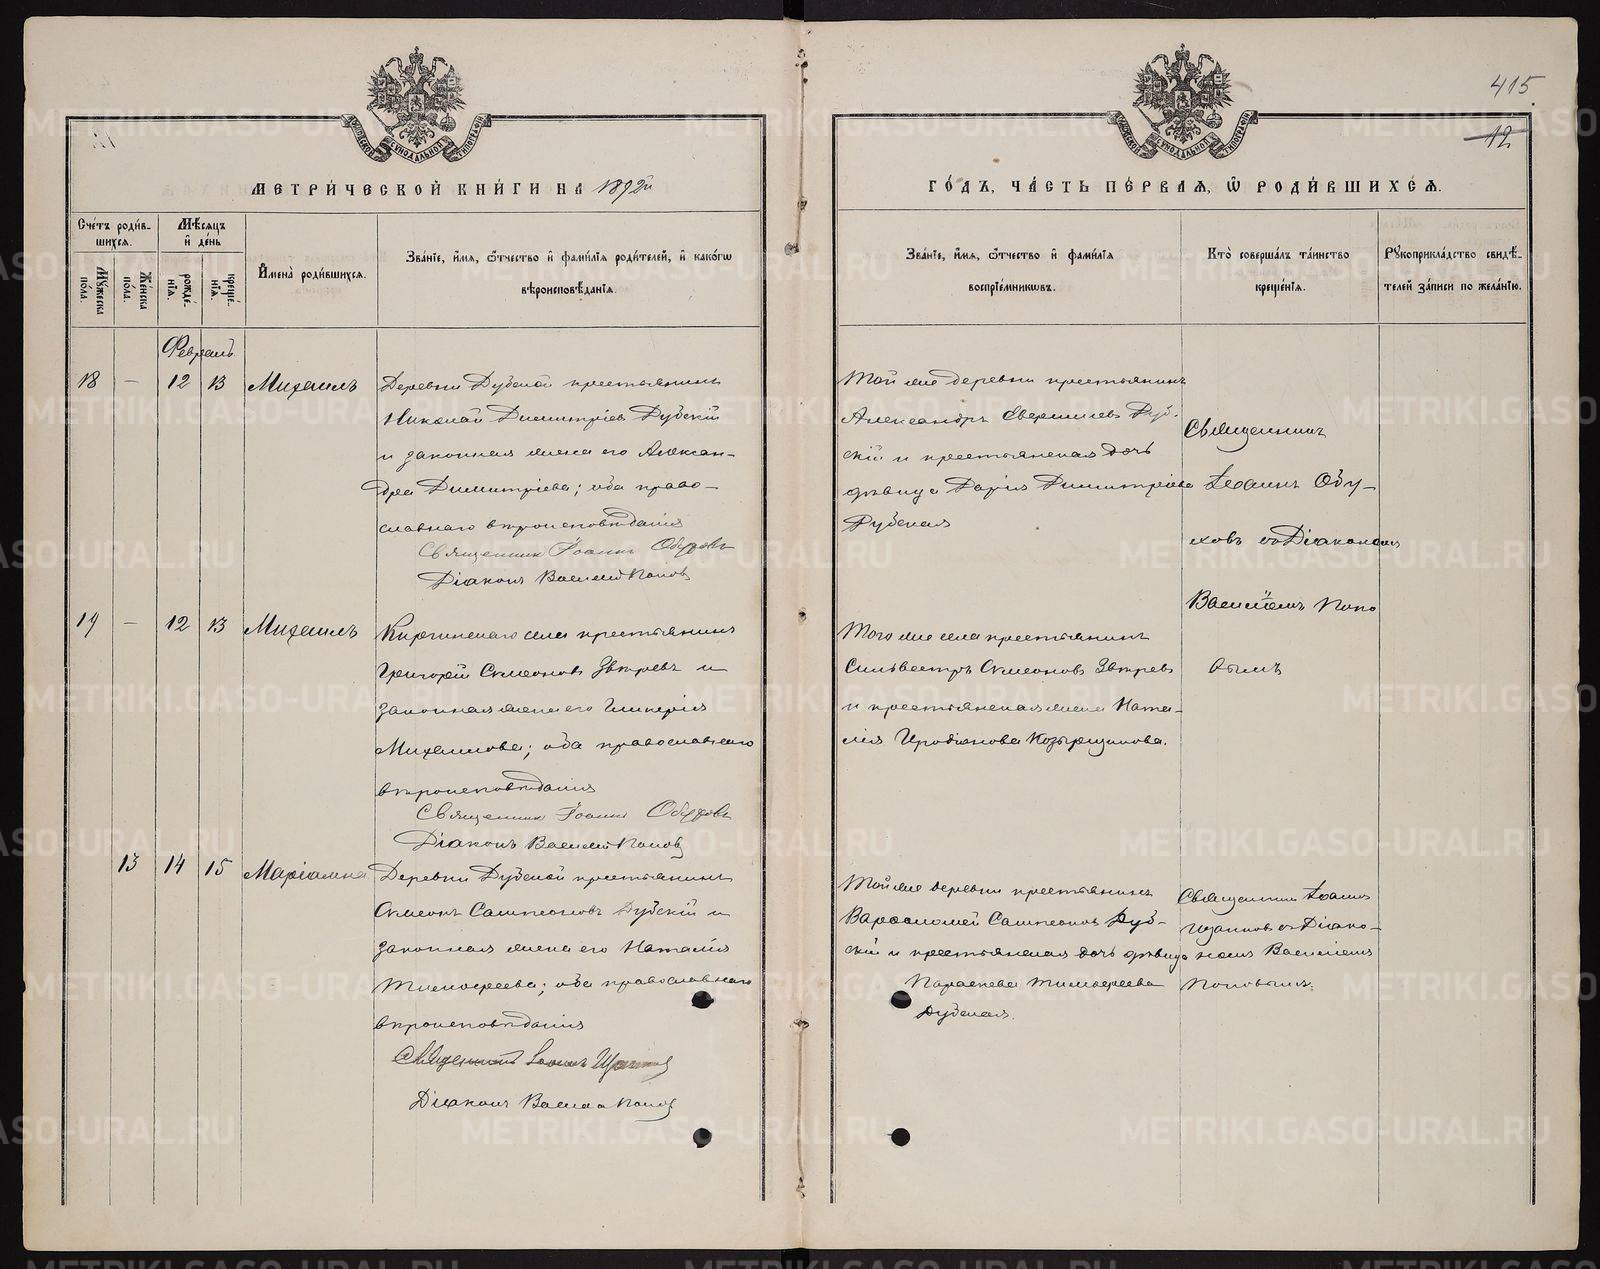 415
12
МЕТРИ́ЧЕСКОЙ КНИ́ГИ НА 1892й
ГО́ДЪ, ЧА́СТЬ ПЕ́РВАЯ, Ѡ РОДИ́ВШИХСЯ.
Сче́тъ роди́в-
шихся.
Му́жеска по́ла.
Же́нска по́ла.
Мѣ́сяцъ и де́нь
рожде́-нія.
креще́-нія.
И́мена роди́вшихся.
Зва́ніе, и́мя, ѻ́тчество и фами́лія роди́телей, и како́гѡ
вѣроисповѣ́данія.
Зва́ніе, и́мя, ѻ́тчество и фами́лія
воспріе́мникѡвъ.
Кто̀ соверша́лъ та́инство
креще́нія.
Рꙋкоприкла́дство свидѣ́-
телей за́писи по жела́нію.
Февраль
18 — 12 13 Михаилъ
Деревни Дубской крестьянинъ
Николай Димитріевъ Дубскій
и законная жена его Алексан-
дра Димитріева; оба право-
славнаго вѣроисповѣданія
Священникъ Іоаннъ Обуховъ
Діаконъ Василій Поповъ
Той же деревни крестьянинъ
Александръ Дуб-
скій и крестьянская дочь
дѣвица Дарія Димитріева
Дубская
Священникъ
Іоаннъ Обу-
ховъ съ Діакономъ
Василіемъ Попо
вымъ
19 — 12 13 Михаилъ
Киргинскаго села крестьянинъ
Григорій Симеоновъ Звѣревъ и
законная жена его Гликерія
Михаилова; оба православнаго
вѣроисповѣданія
Священникъ Іоаннъ Обуховъ
Діаконъ Василій Поповъ
Того же села крестьянинъ
Сильвестръ Симеоновъ Звѣревъ
и крестьянская жена Ната-
лія Иродіонова
13 14 15 Маріамна
Деревни Дубской крестьянинъ
Симеонъ Сампсоновъ Дубскій и
законная жена его Наталія
Тимофеева; оба православнаго
вѣроисповѣданія
Священникъ Іоаннъ
Діаконъ Василій Поповъ
Той же деревни крестьянинъ
Варѳоломей Сампсоновъ Дуб-
скій и крестьянская дочь дѣвица
Параскева Тимофеева
Дубская.
Священникъ Іоаннъ
съ Діако-
номъ Василіемъ
Поповымъ.
METRIKI.GASO-URAL.RU